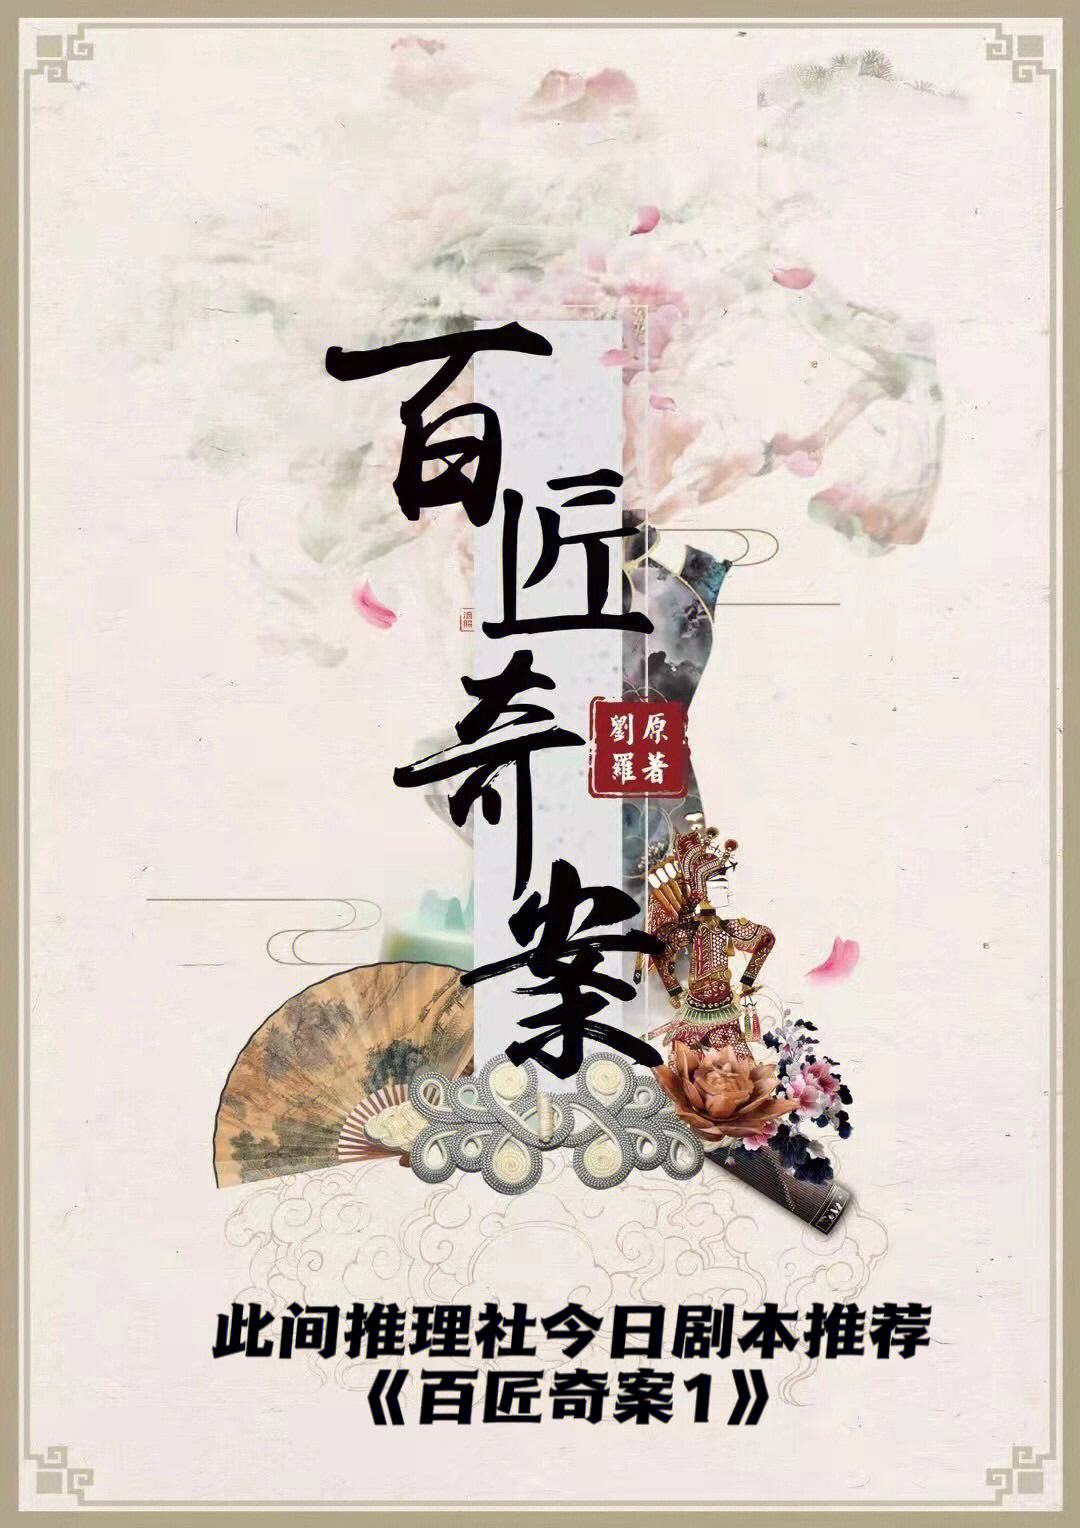 百匠奇案
原著
劉羅
此间推理社今日剧本推荐
《百匠奇案1》